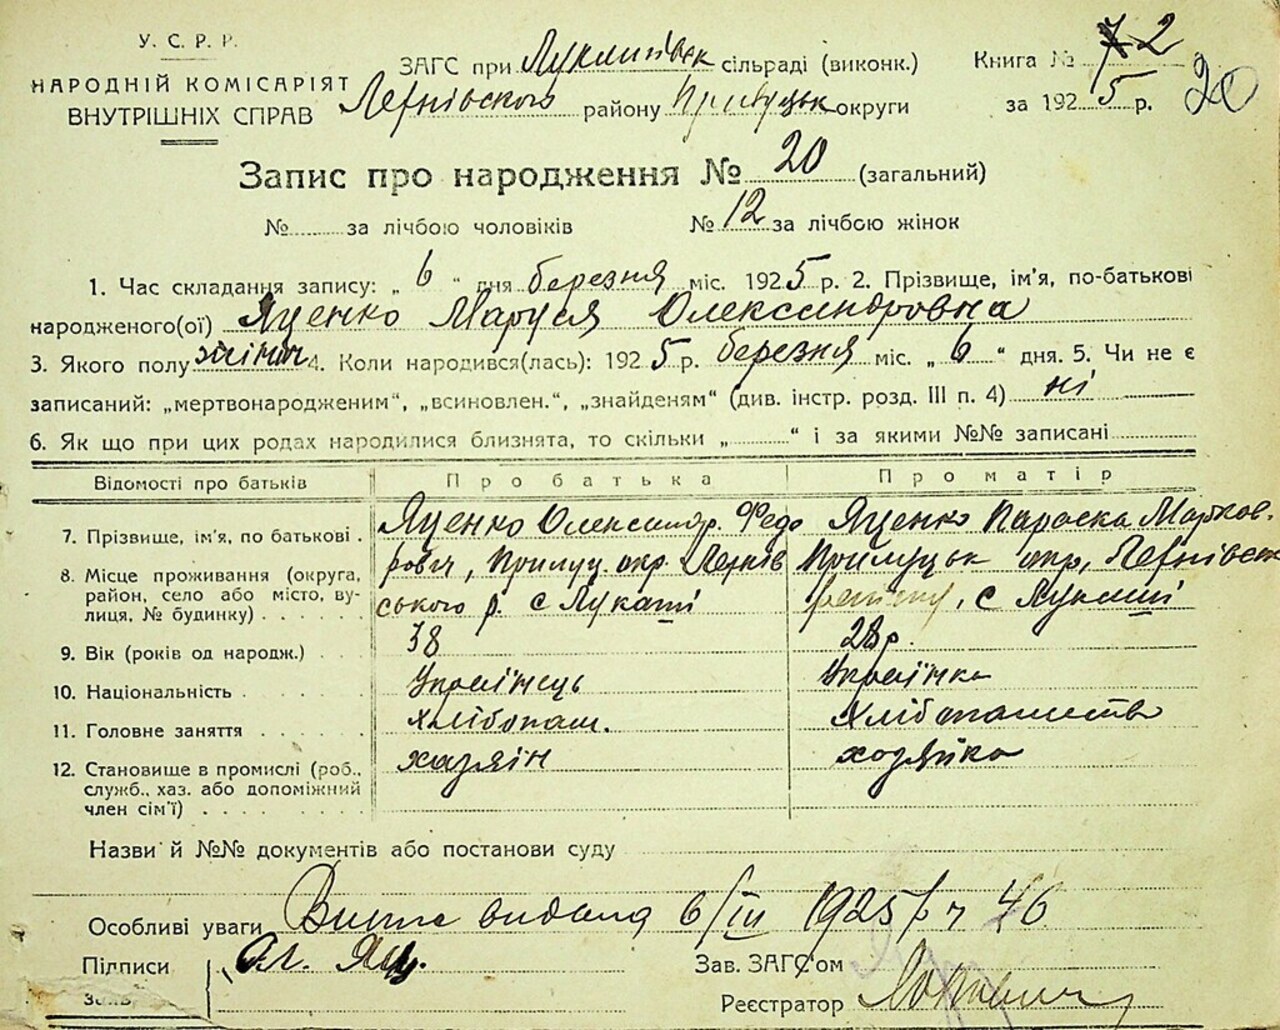 У. С. Р. Р.
НАРОДНІЙ КОМІСАРІЯТ
ВНУТРІШНІХ СПРАВ
ЗАГС при сільраді (виконк.)
району округи
Книга № 2
за 1925 р. 20
Запис про народження № 20 (загальний)
№ за лічбою чоловіків № 12 за лічбою жінок
1. Час складання запису: „ 6 “ дня березня міс. 1925 р. 2. Прізвище, ім'я, по-батькові
народженого(ої) Яценко Маруся Олександровна
3. Якого полу жіноч 4. Коли народився(лась): 1925 р. березня міс. „ 6 “ дня. 5. Чи не є
записаний: „мертвонародженим“, „всиновлен.“, „знайденям“ (див. інстр. розд. III п. 4) ні
6. Як що при цих родах народилися близнята, то скільки „ “ і за якими №№ записані
Відомості про батьків Про батька Про матір
7. Прізвище, ім'я, по батькові Яценко Олександр. Федо Яценко Параска Марков.
8. Місце проживання (округа, рович, Прилуц. окр. Прилуцьк окр,
район, село або місто, ву- ського р. с , с
лиця, № будинку)
9. Вік (років од народж.) 38 28 р.
10. Національність Українець Українка
11. Головне заняття хлібопаш. хлібопашество
12. Становище в промислі (роб., хазяїн хозяйка
служб., хаз. або допоміжний
член сім'ї)
Назви й №№ документів або постанови суду
Особливі уваги видана 6/III 1925 р ч 46
Підписи Ол. Яц.
Заяв.
Зав. ЗАГС'ом
Реєстратор